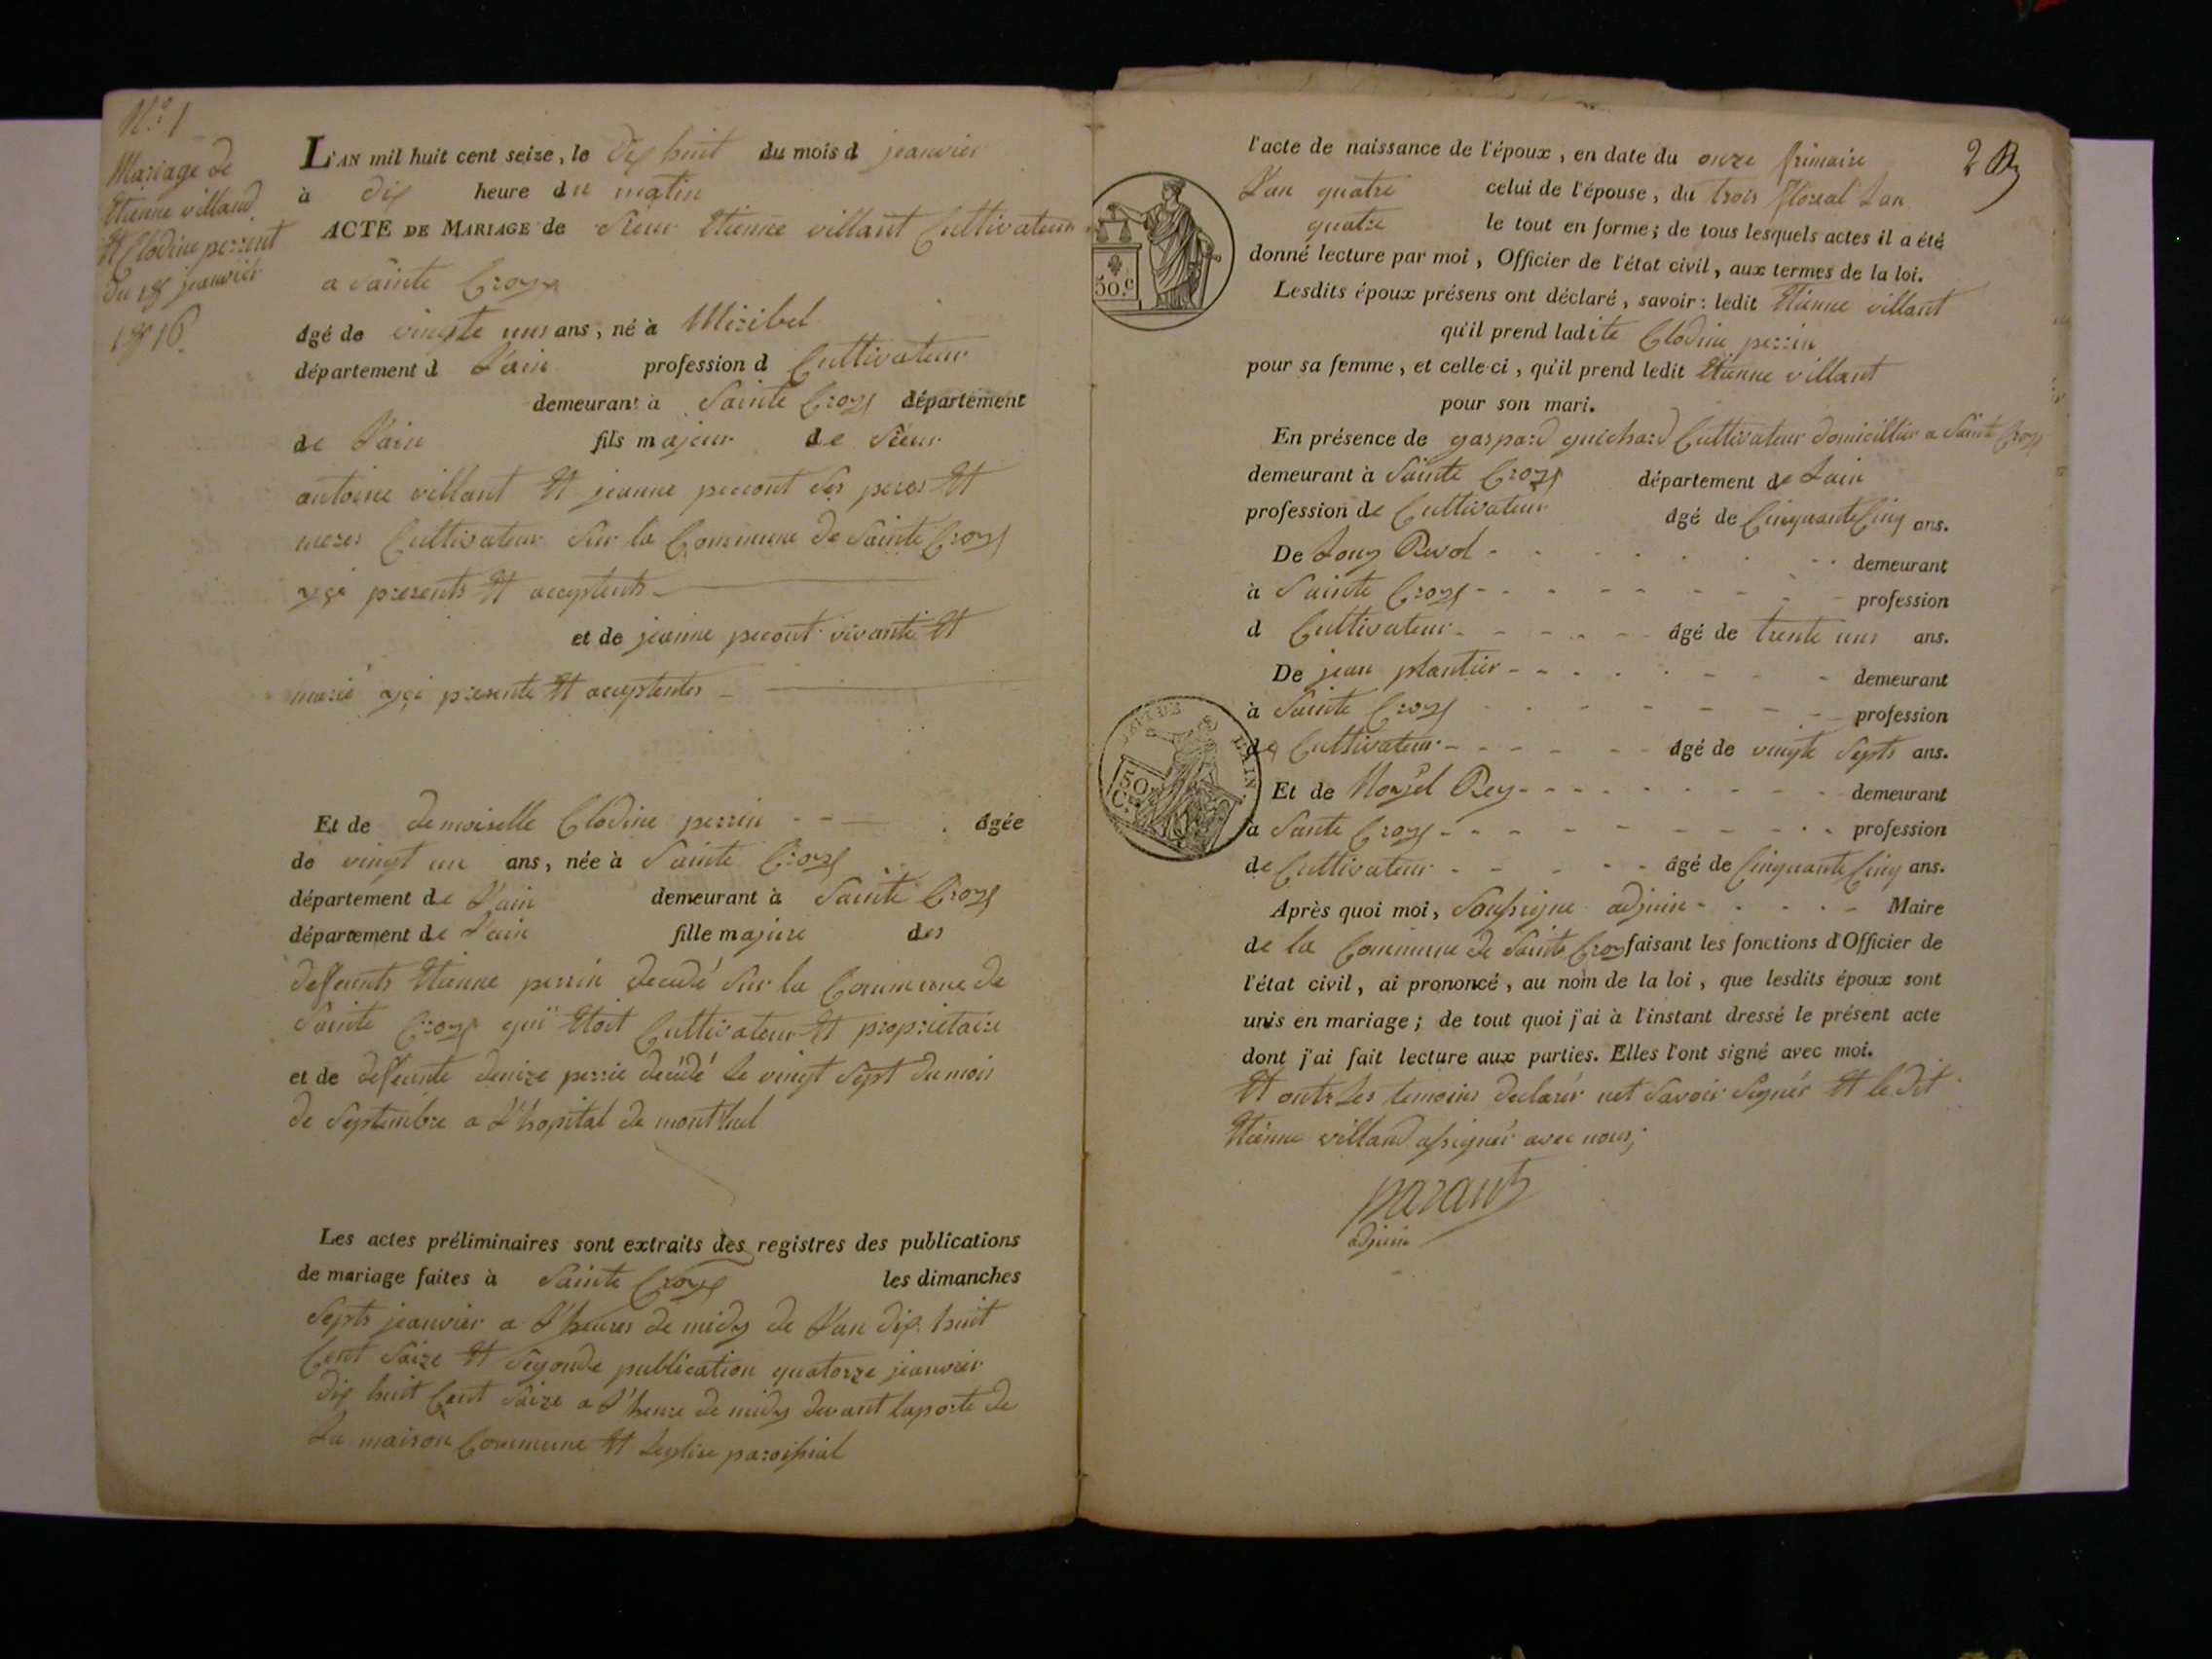 N.º 1
Mariage de
Etienne villand
Et Clodine perrent
du 18 jeanvier
1816.
L'AN mil huit cent seize, le dix huit du mois d jeanvier
à dix heure du matin
ACTE DE MARIAGE de Sieur Etienne villant Cultivateur
a Sainte Croys
âgé de vingte uns ans, né à Miribel
département d L'ain profession d Cultivateur
demeurant à Sainte Croys département
de L'ain fils majeur de Sieur
antoine villant Et jeanne pecont Ses peres Et
meres Cultivateur Sur la Commune de Sainte Croys
yçi presents Et acceptents
et de jeanne pecont vivante Et
marié yçi presente Et acceptentes
Et de demoiselle Clodine perrin âgée
de vingt un ans, née à Sainte Croys
département de L'ain demeurant à Sainte Croys
département de L'ain fille majure des
deffeunts Etienne perrin decedé Sur la Commune de
Sainte Croys qui Etoit Cultivateur Et proprietaire
et de deffeunte denize perrie décédé Le vingt Sept du mois
de Septembre a L'hopital de montluel
Les actes préliminaires sont extraits des registres des publications
de mariage faites à Sainte Croys les dimanches
Septs jeanvier a L'heures de midy de L'an dix huit
Cent Saize Et Segonde publication quatorze jeanvier
dix huit Cent Saize a L'heure de midy devant laporte de
La maison Commune Et Leglise paroissial
2
l'acte de naissance de l'époux, en date du onze frimaire
L'an quatre celui de l'épouse, du trois floreal Lan
quatre le tout en forme; de tous lesquels actes il a été
donné lecture par moi, Officier de l'état civil, aux termes de la loi.
50.c
Lesdits époux présens ont déclaré, savoir: ledit Etienne villant
qu'il prend ladite Clodine perrin
pour sa femme, et celle-ci, qu'il prend ledit Etienne villant
pour son mari.
En présence de gaspard guichard Cultivateur domicillier a Sainte Croys
demeurant à Sainte Croys département de Lain
profession de Cultivateur âgé de Cinquante Cinq ans.
De Louy Revol demeurant
à Sainte Croys profession
d Cultivateur âgé de trente uns ans.
De jean plantier demeurant
à Sainte Croys profession
de Cultivateur âgé de vingte Septs ans.
50 Ces
AIN.
Et de Rey demeurant
à Sante Croys profession
de Cultivateur âgé de Cinquante Cinq ans.
Après quoi moi, Soussigne adjoin Maire
de la Commune de Sainte Croy faisant les fonctions d'Officier de
l'état civil, ai prononcé, au nom de la loi, que lesdits époux sont
unis en mariage; de tout quoi j'ai à l'instant dressé le présent acte
dont j'ai fait lecture aux parties. Elles l'ont signé avec moi.
Et ont Les temoins declarés net Savoir Signés Et le dit
Etienne villand assignés avec nous;
parant
adjoin